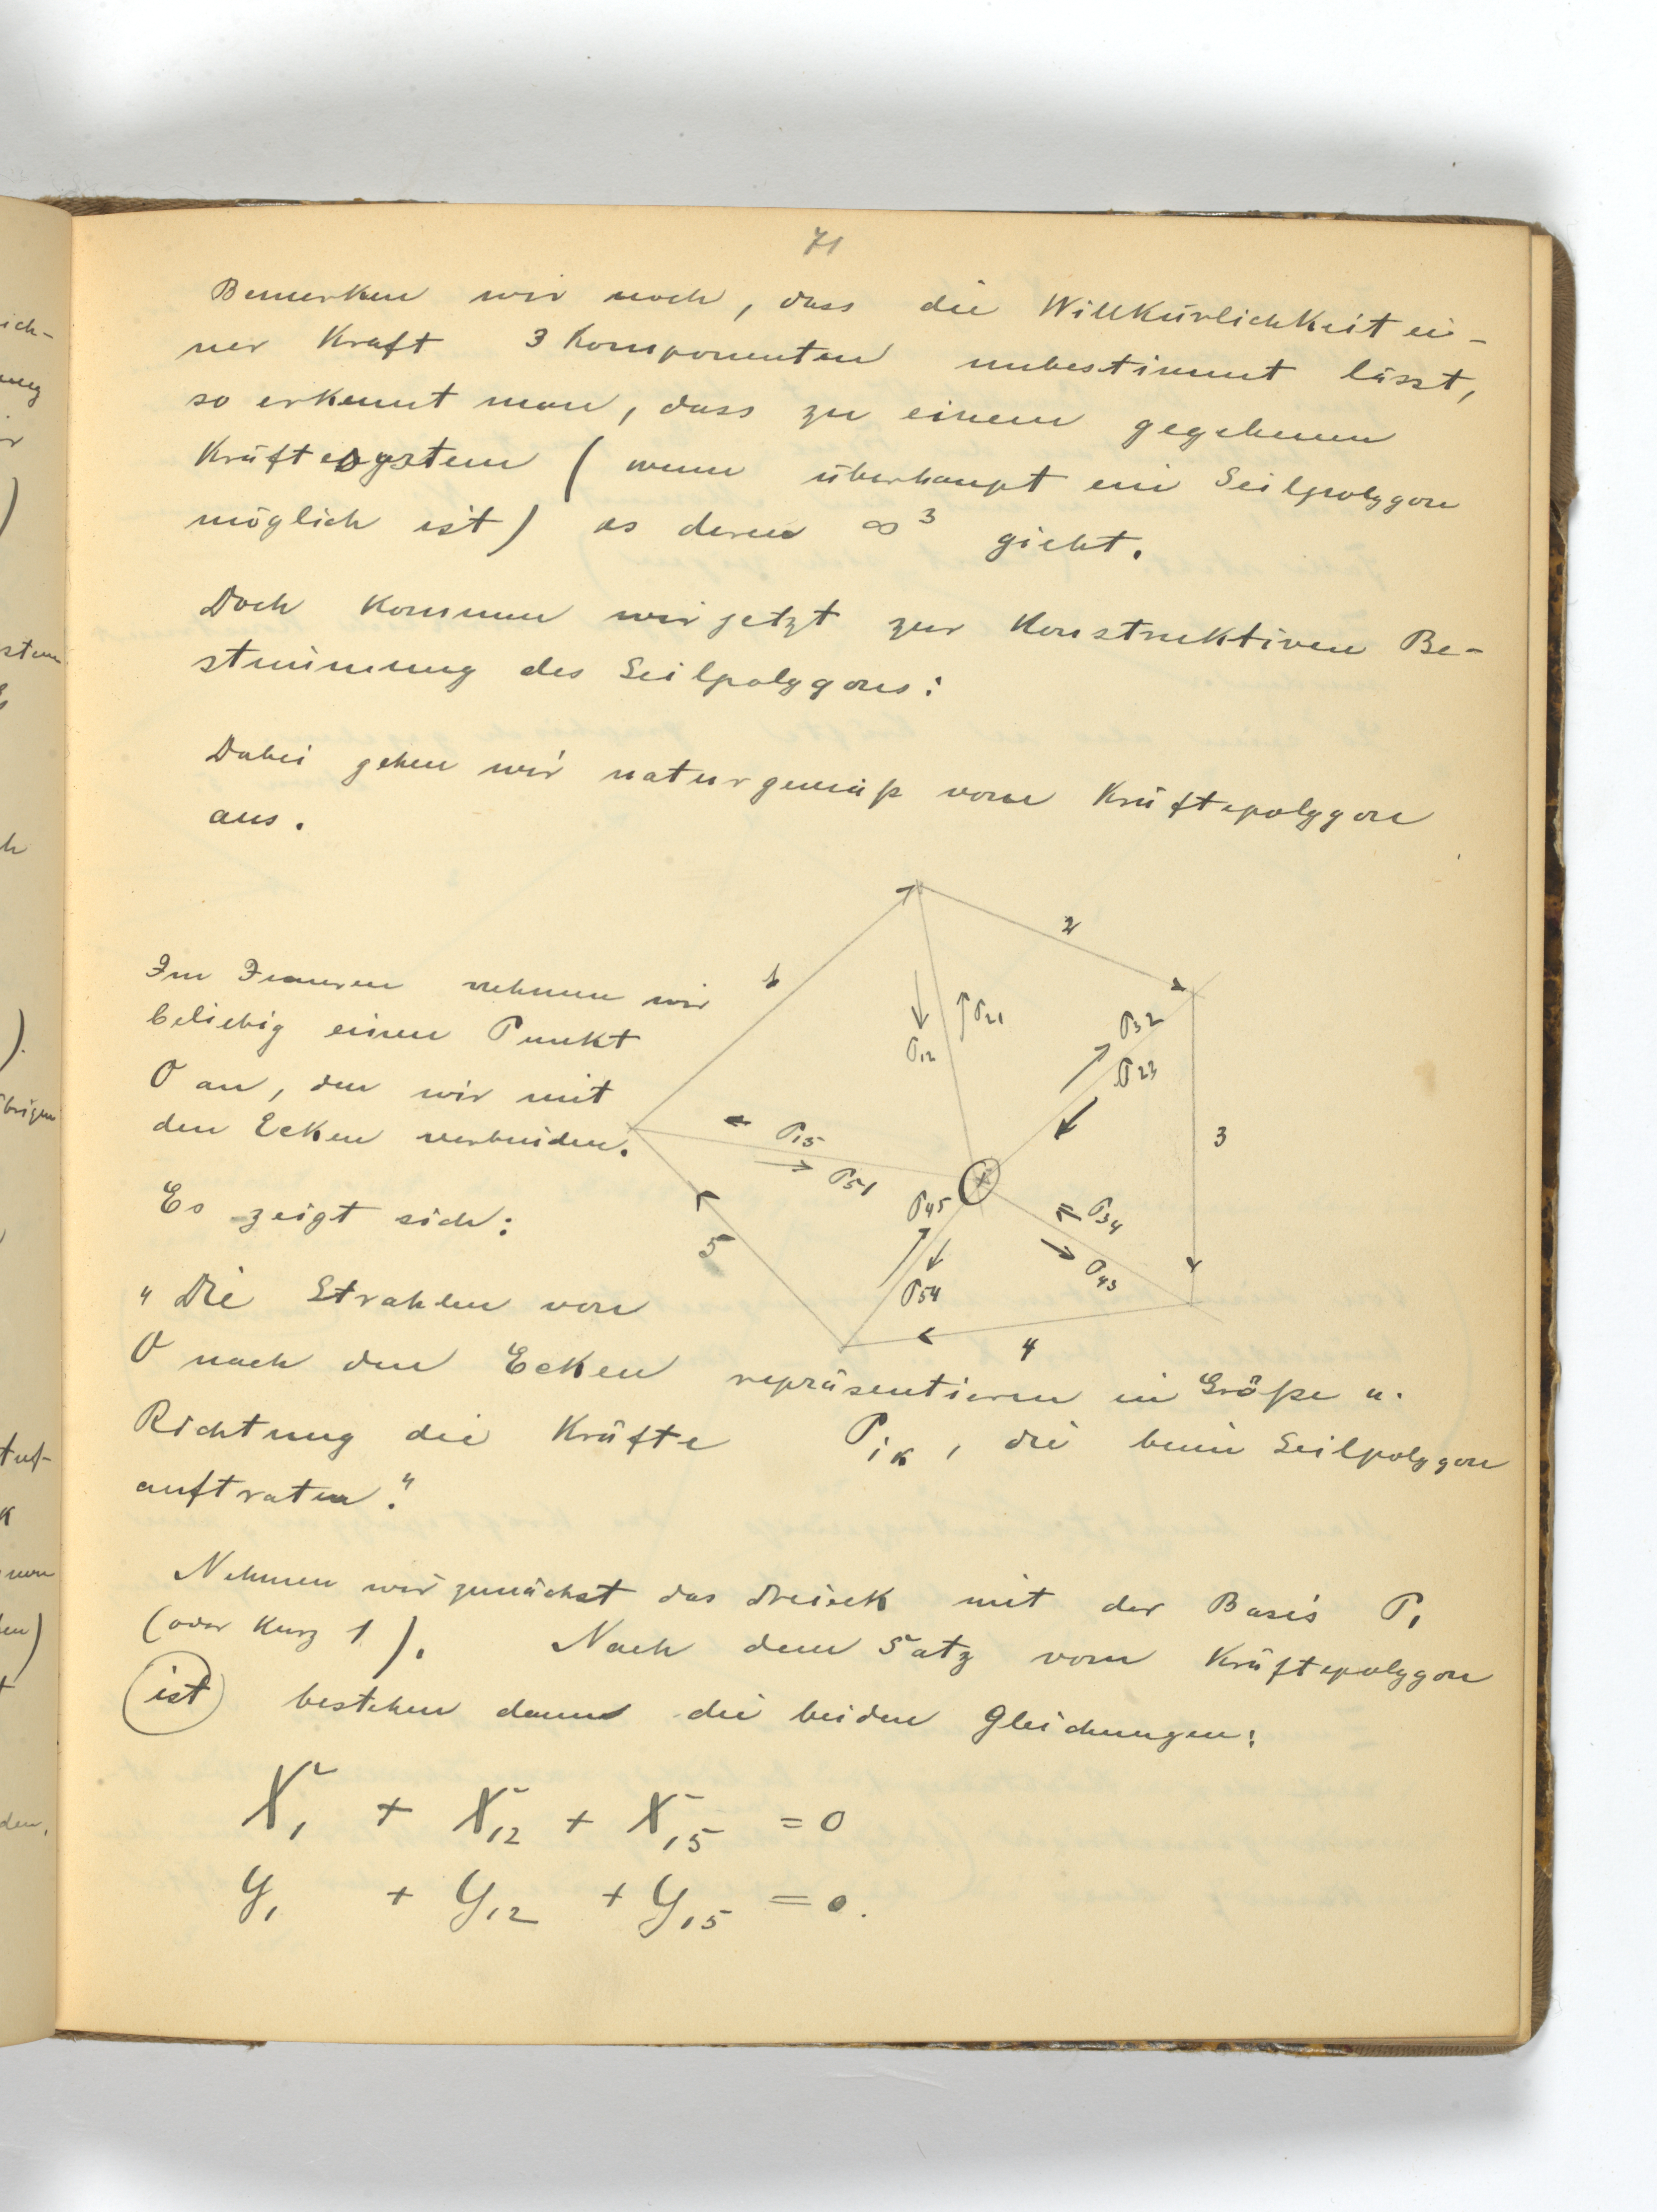 71
Bemerken wir noch, dass die Willkürlichkeit ei-
ner Kraft 3 Komponenten unbestimmt lässt,
so erkennt man, dass zu einem gegebenen
Kräftesystem (wenn überhaupt ein Seilpolygon
möglich ist) es deren ∞³ giebt.
Doch kommen wir jetzt zur konstruktiven Be-
stimmung des Seilpolygons:
Dabei gehen wir naturgemäß vom Kräftepolygon
aus.
Im Inneren nehmen wir
beliebig einen Punkt
O an, den wir mit
den Ecken verbinden.
Es zeigt sich:
"Die Strahlen von
O nach den Ecken repräsentieren in Größe u.
Richtung die Kräfte P_ik, die beim Seilpolygon
auftraten."
1
2
3
4
5
P12
P21
P32
P23
P15
P51
P45
P54
P34
P43
Nehmen wir zunächst das Dreieck mit der Basis P1
(oder kurz 1). Nach dem Satz vom Kräftepolygon
ist bestehen dann die beiden Gleichungen:
X1 + X12 + X15 = 0
Y1 + Y12 + Y15 = 0.